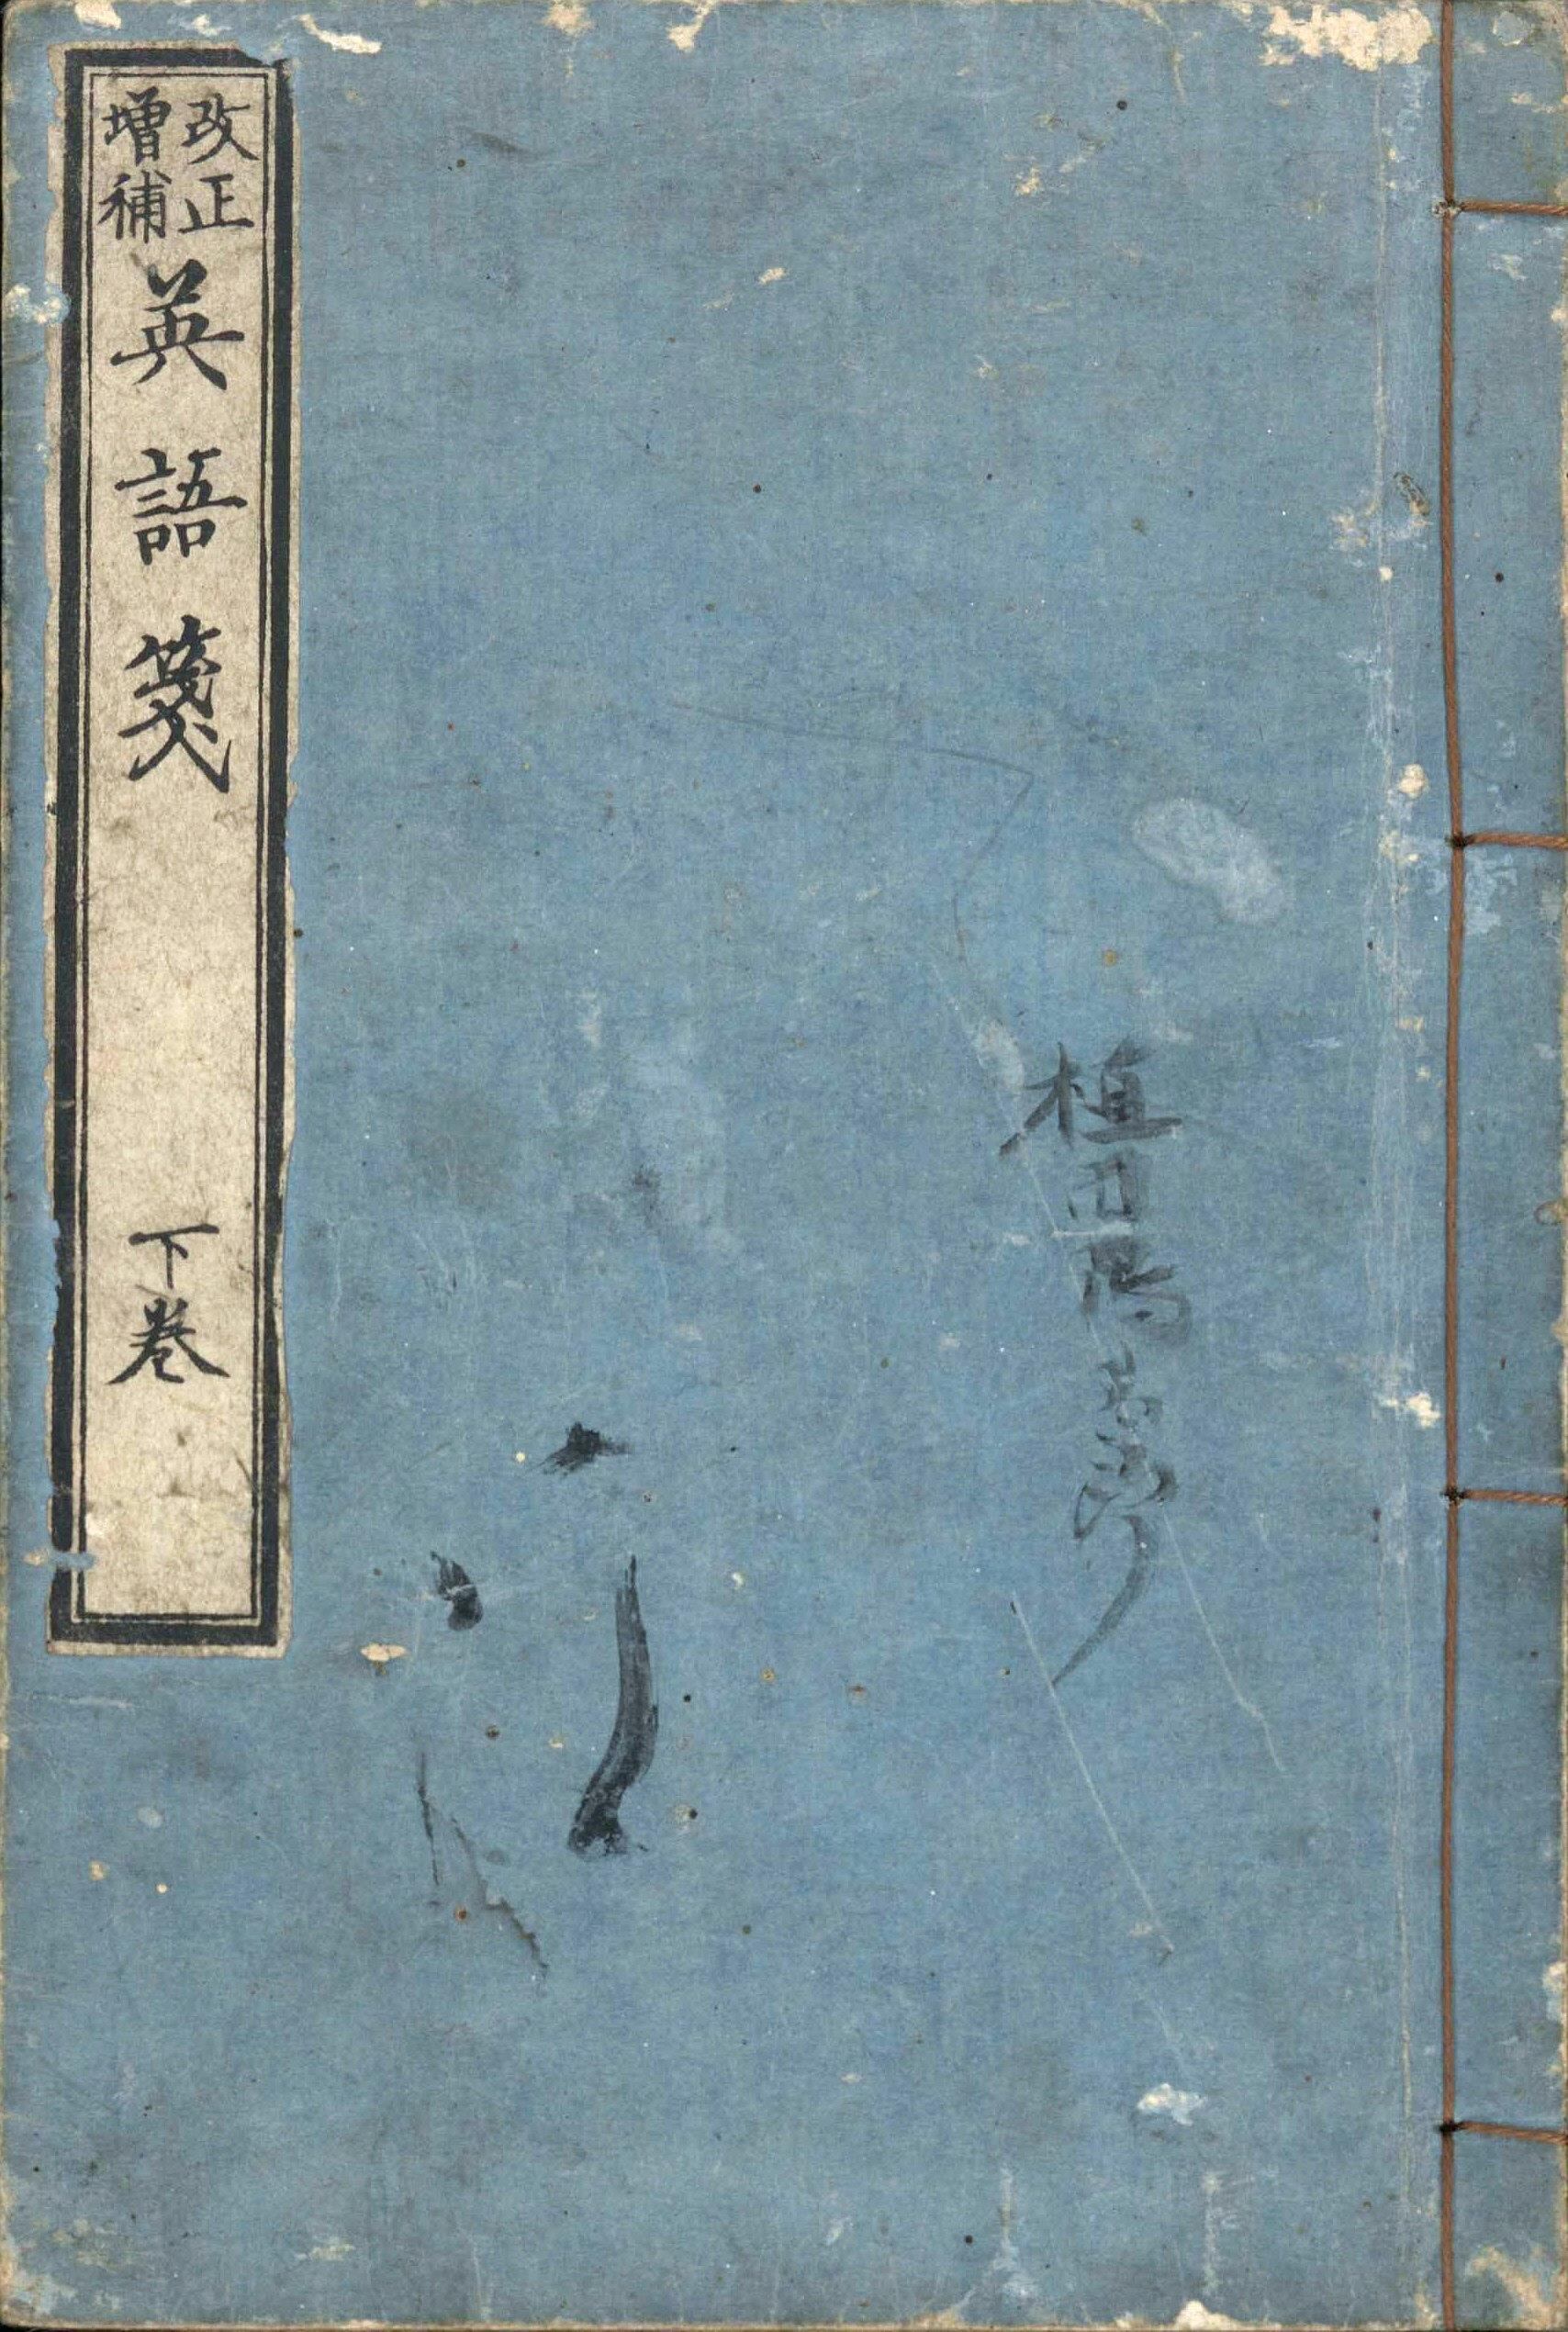 改正
増補
英語箋
下巻
植田
郎